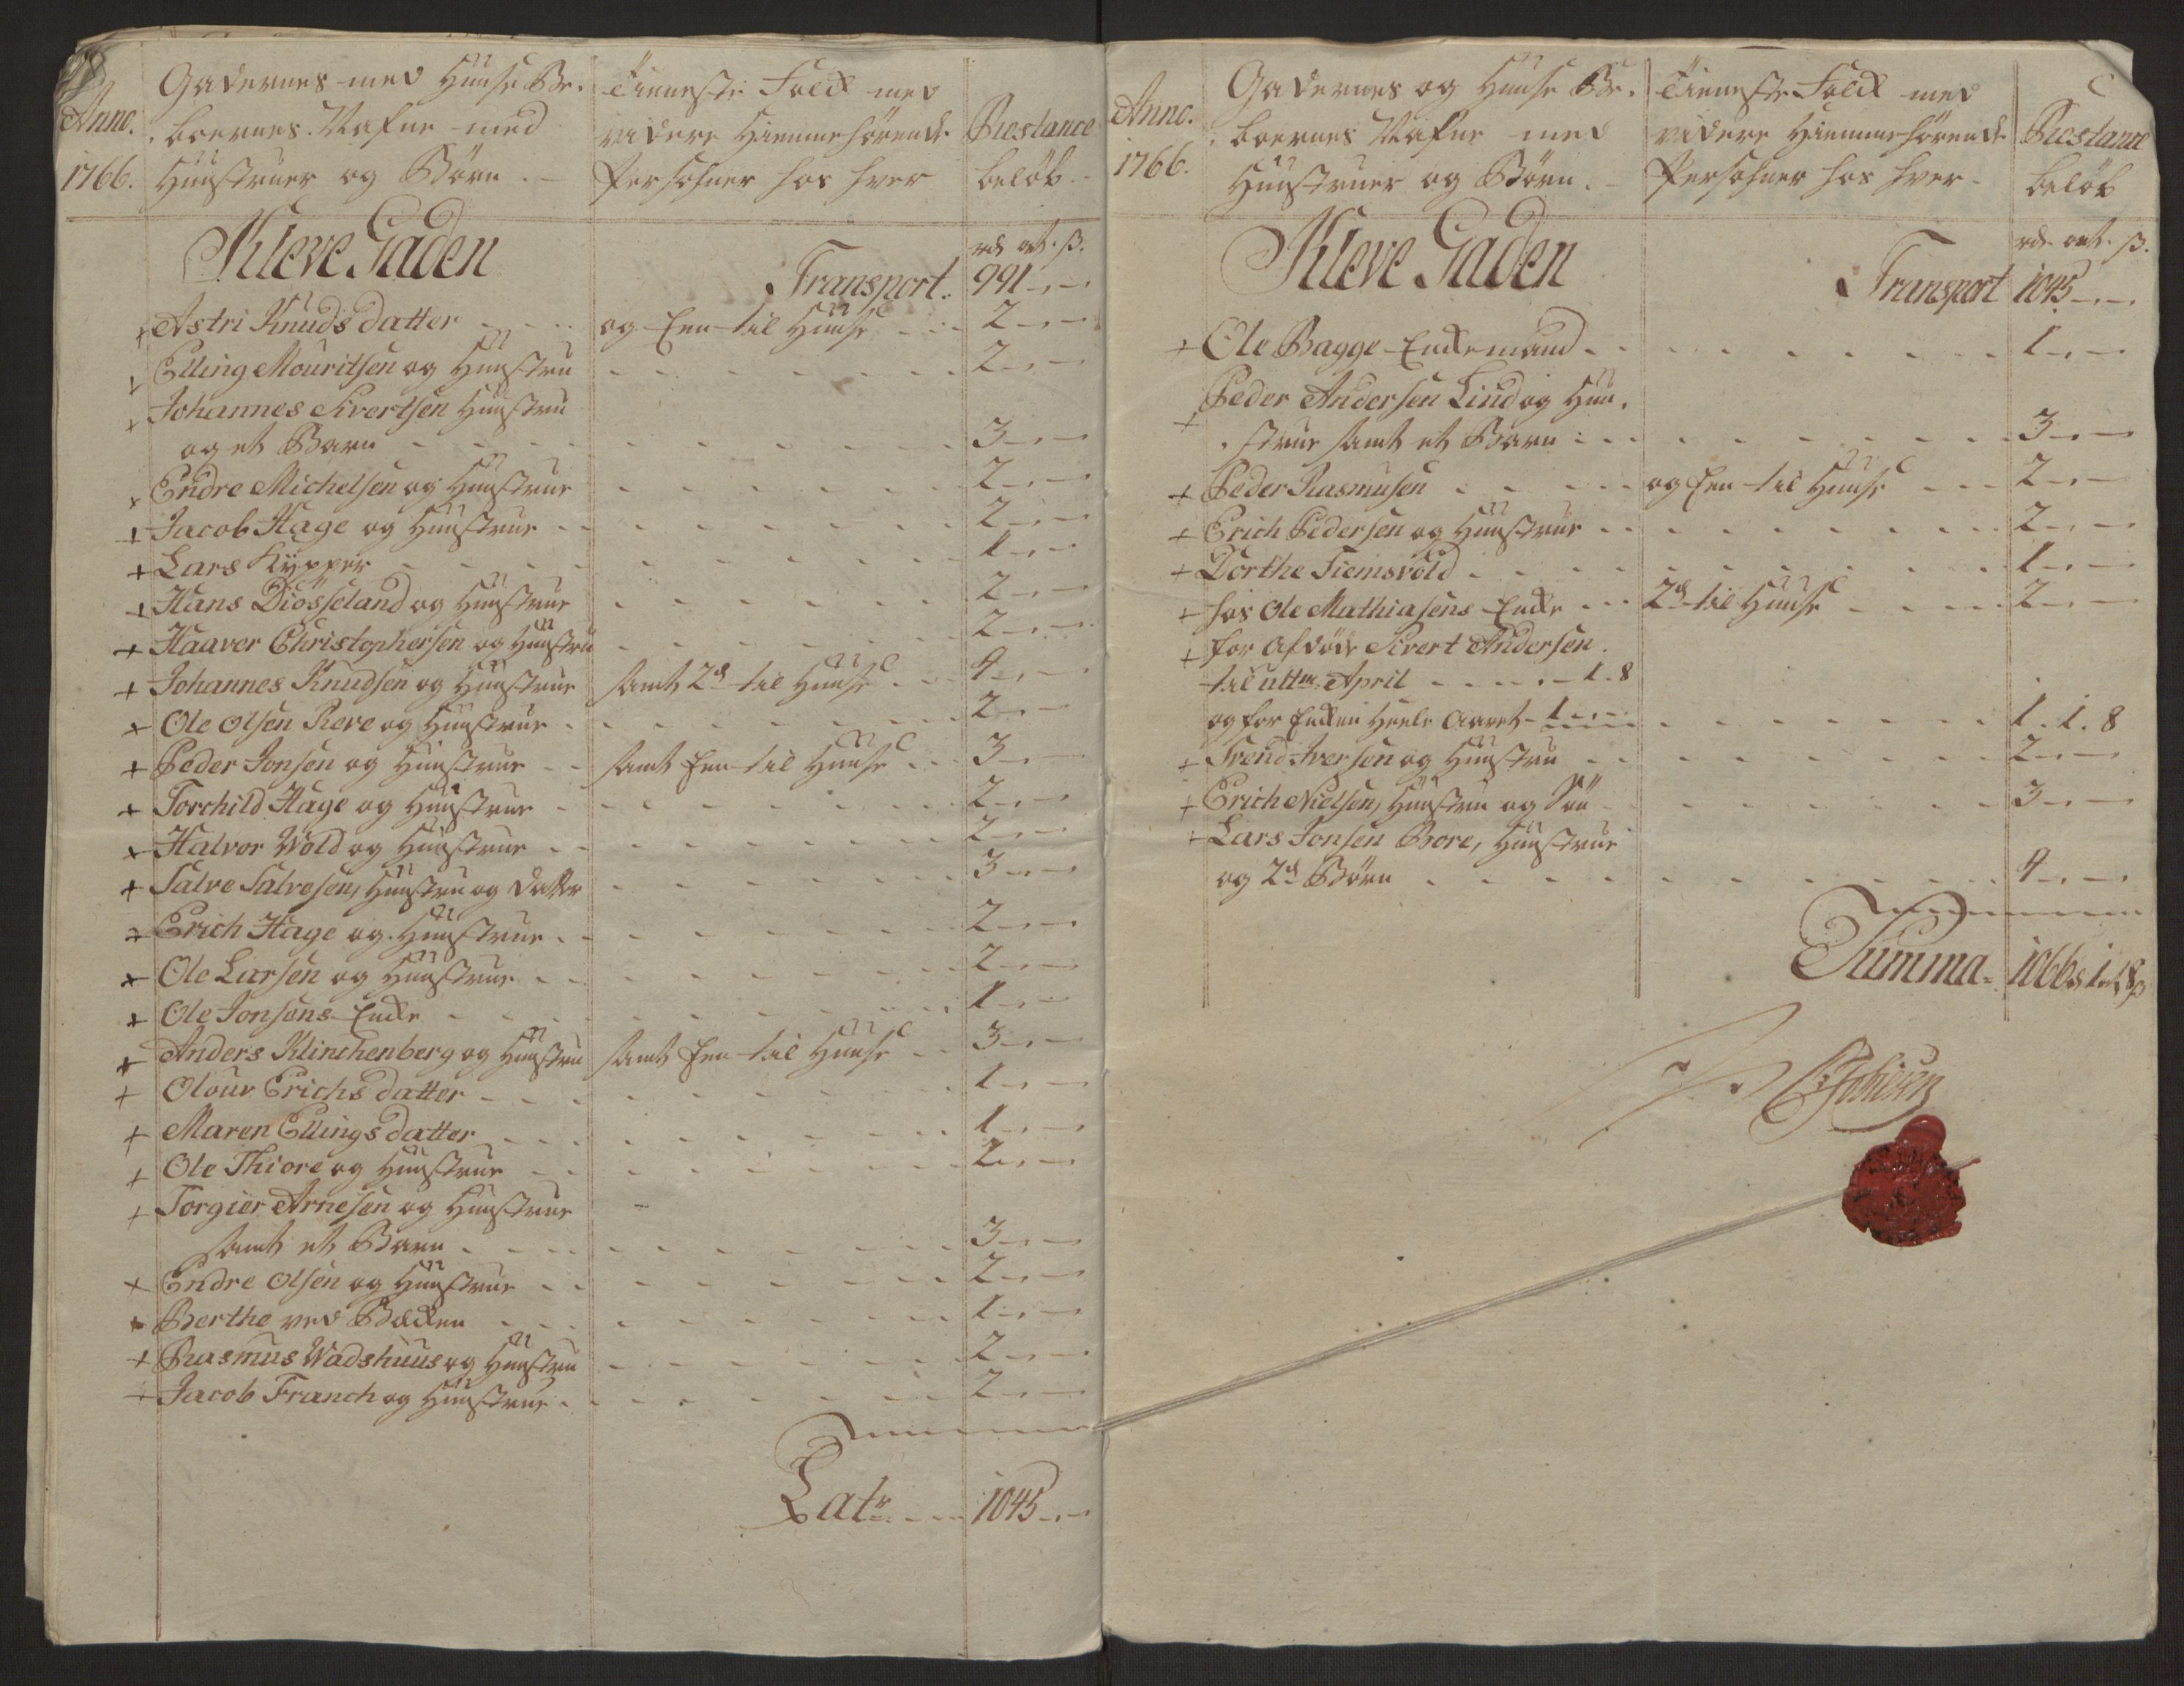 Anno.
1766.
Gadernes med Huuse Be-
boernes Nafne med
Huustruer og Börn.
Tieneste Folck med
videre Hiemmehörende
Persohner hos hver
Restance
belöb
Kleve Gaden
rd ort. ß.
Transport. 991 -.-
+ Astri Knudsdatter - - - og Een til Huuse - - 2 -.-
+ Elling Mouritsen og Huustru - - - 2 -.-
+ Johannes Sivertsen Huustru
og et Barn - - - 3 -.-
+ Endre Michelsen og Huustrue - - - 2 -.-
+ Jacob Hage og Huustrue - - - 2 -.-
+ Lars Kypper - - - 1 -.-
+ Hans Diösseland og Huustrue - - - 2 -.-
+ Haaver Christophersen og Huustru - - - 2 -.-
+ Johannes Knudsen og Huustrue samt 2de til Huuse - - 4 -.-
+ Ole Olsen Reve og Huustrue - - - 2 -.-
+ Peder Jonsen og Huustrue - - samt Een til Huuse - - 3 -.-
+ Torchild Hage og Huustrue - - - 2 -.-
+ Halvor Wold og Huustrue - - - 2 -.-
+ Salve Salvesen, Huustru og Datter - - - 3 -.-
+ Erich Hage og Huustrue - - - 2 -.-
+ Ole Larsen og Huustrue - - - 2 -.-
+ Ole Jonsens Encke - - - 1 -.-
+ Anders Klinchenberg og Huustru samt Een til Huuse - - 3 -.-
+ Olour Erichsdatter - - - 1 -.-
+ Maren Ellingsdatter - - - 1 -.-
+ Ole Thiore og Huustrue - - - 2 -.-
+ Torgier Arnesen og Huustrue
samt et Barn - - - 3 -.-
+ Endre Olsen og Huustrue - - - 2 -.-
+ Berthe ved Backen - - - 1 -.-
+ Rasmus Wadshuus og Huustru - - - 2 -.-
+ Jacob Franch og Huustrue - - - 2 -.-
Latr - - - 1045 -.-
Anno.
1766.
Gadernes og Huuse Be-
boernes Nafne med
Huustruer og Börn.
Tieneste Folck med
videre Hiemmehörende
Persohner hos hver
Restance
belöb
Kleve Gaden
rd ort. ß.
Transport 1045 -.-
+ Ole Bagge Enckemand - - - 1 -.-
+ Peder Andersen Lind og Huu-
strue samt et Barn - - - 3 -.-
+ Peder Rasmusen - - - og Een til Huuse - - 2 -.-
+ Erich Pedersen og Huustrue - - - 2 -.-
+ Dorthe Tiemsvold - - - 1 -.-
+ hos Ole Mathiasens Encke - - 2de til Huuse - - 2 -.-
+ for afdöde Sivert Andersen
til ultm April - - - 1. 8
og for Encken Heele Aaret - 1 -.- - - - 1. 1. 8
+ Trend Iversen og Huustru - - - 2 -.-
+ Erich Nielsen, Huustru og Sön - - - 3 -.-
+ Lars Jonsen Bore, Huustrue
og 2de Börn - - - 4 -.-
Summa. 1066 1 8ß